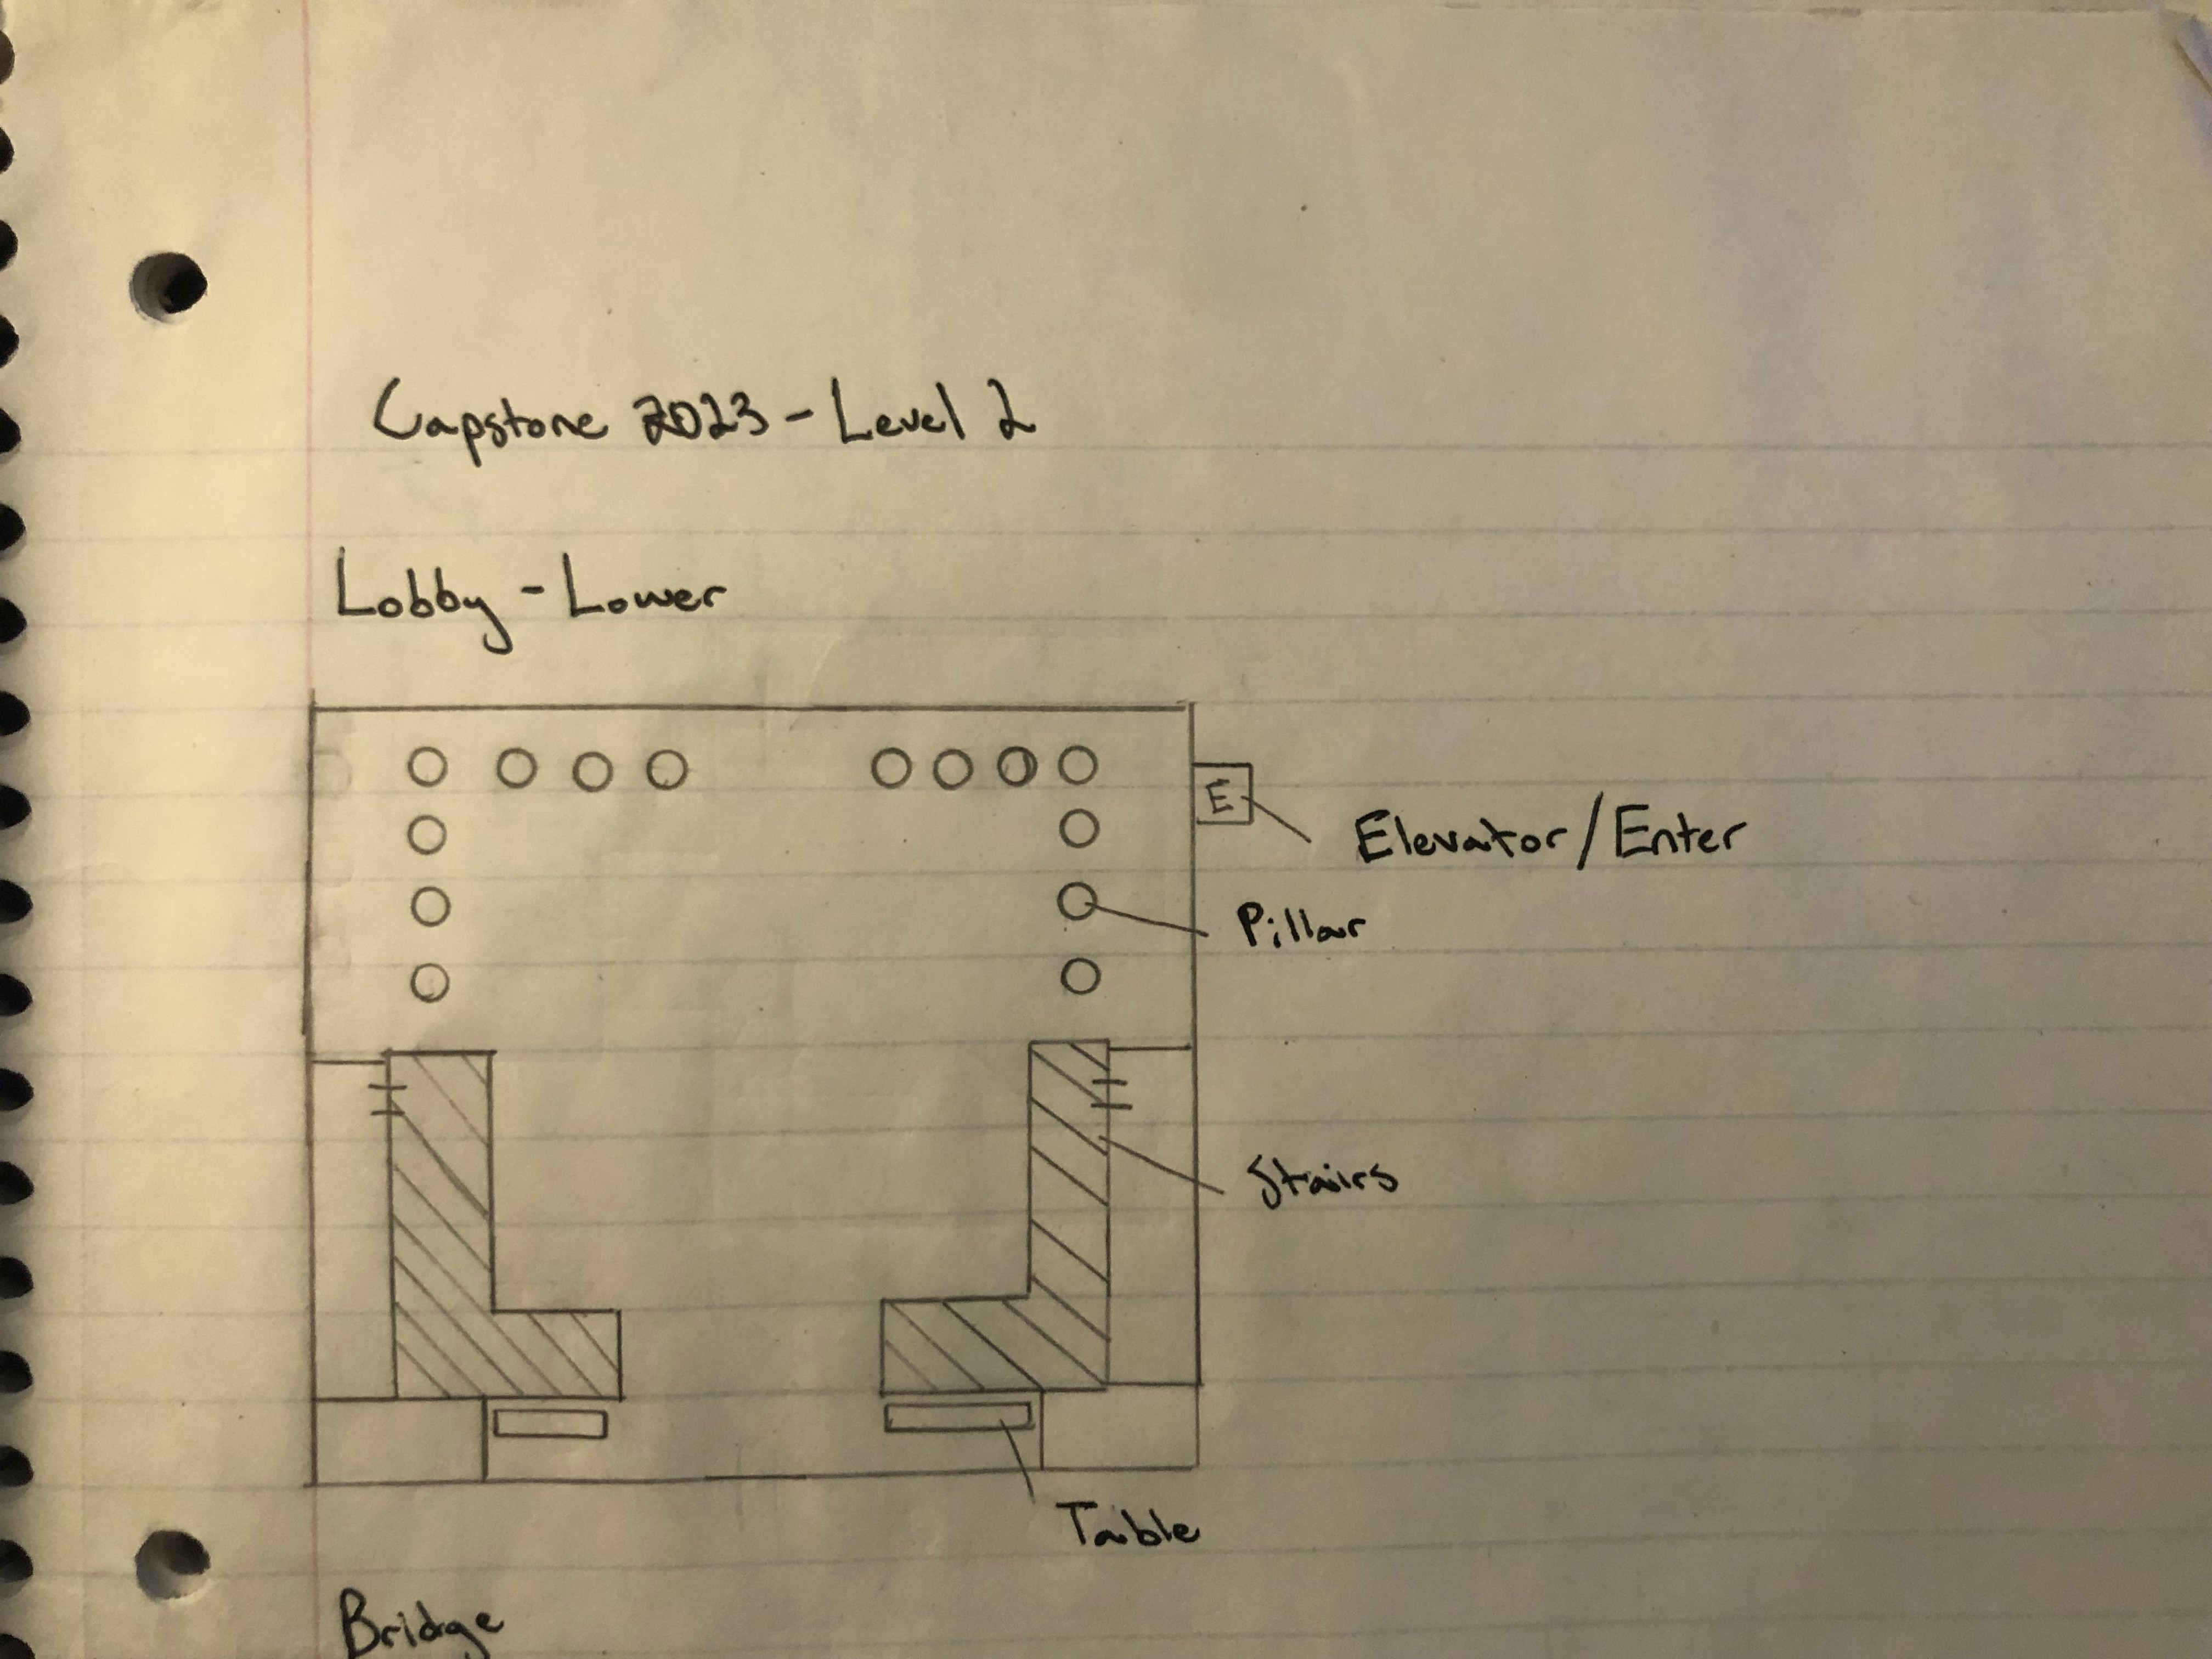 Capstone 2023 - Level 2
Lobby - Lower
E
Elevator/Enter
Pillar
Stairs
Table
Bridge